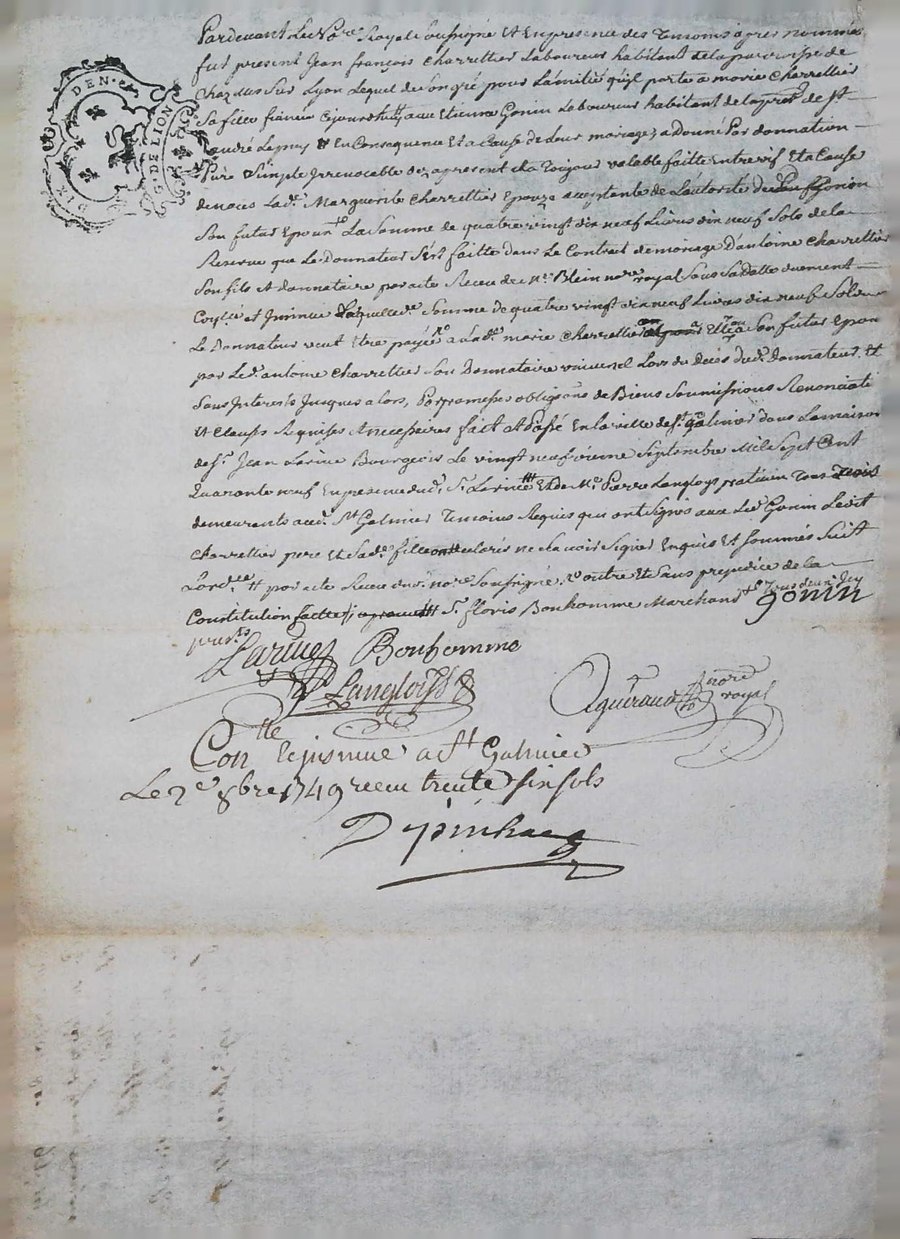 DEN
GEN DE LION
Pardevant Le No.re Royal Soussigné Et En presence des Temoins apres nommés
fut present Jean françois Charrettier Laboureur habitant de la parroisse de
Chazelles Sur Lyon Lequel de Son gré pour Lamitié quil porte a marie Charrettier
Sa fille fiancée Cejourdhuy avec Etienne Gonin Laboureur habitant de la pr.sse de St
andré Lepuy & En Consequence Et a Cause de Leur mariage, a Donné Par donnation
Pure Simple Irrevocable dez apresent Et a Toujour valable faitte Entre vif Et a Cause
de noces Lad.e Marguerite Charrettier Epouze acceptante de L'autorité dud Gonin
Son futur Epoux La Somme de quatre vingt dix neuf Livres dix neuf Sols de la
Reserve que Le Donnateur S'est faitte dans Le Contrat de mariage D'antoine Charrettier
Son fils Et donnataire par acte Receu de M.e Blein no.re royal Sous Sa datte duement
Con.lé et Jnsinué Laquelle d.e Somme de quatre vingt dix neuf Livres dix neuf Sols
Le Donnateur veut Etre payée a Lad.e marie Charrettier Et a Son futur Epoux
par Led.t antoine Charrettier Son Donnataire universel Lors du Deces dud.t Donnateur Et
Sans Interests Jusques a lors, Par promesses obligãons de Biens Soumissions Renonciati
Et Clauses Requises Et necessaires fait Et Passé En la ville de St Galmier dans La maison
de S.r Jean Larive Bourgeois Le vingt neufvieme Septembre Mil Sept Cent
Quarante neuf En presence dud. S.r Larive Et de M.e Pierre Langloys praticien Tous
demeurants aud. St Galmier Temoins Requis qui ont Signés avec Led Gonin Ledit
Charrettier pere Et Sad.e fille ont declarés ne Scavoir Signer Enquis Et Sommés Suit
Lord.ce # par acte Receu du no.re Soussigné, & outre Et Sans prejudice de la
Constitution facte S.r floris Bonhomme Marchand
gonin
pres.ts
Larive Bonhomme
P Langlois
Aguiraud no.re royal
Con.lle et jnsinué a St Galmier
Le 2e 8bre 1749 receu trente six sols
Depinhac